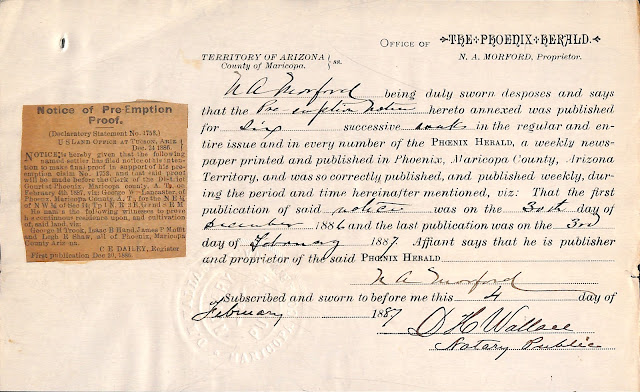 OFFICE OF THE PHOENIX HERALD.
N. A. MORFORD, Proprietor.
TERRITORY OF ARIZONA } ss.
County of Maricopa.
N A Morford being duly sworn desposes and says
that the Pre-emption Notice hereto annexed was published
for Six successive weeks in the regular and en-
tire issue and in every number of the PHŒNIX HERALD, a weekly news-
paper printed and published in Phoenix, Maricopa County, Arizona
Territory, and was so correctly published, and published weekly, dur-
ing the period and time hereinafter mentioned, viz: That the first
publication of said notice was on the 30th day of
December 1886 and the last publication was on the 3rd
day of February 1887. Affiant says that he is publisher
and proprietor of the said PHŒNIX HERALD
N A Morford
Subscribed and sworn to before me this 4 day of
February 1887
D H Wallace
Notary Public
Notice of Pre-Emption
Proof.
(Declaratory Statement No. 1753.)
U S LAND OFFICE AT TUCSON, ARIZ
Dec. 24 1886.
NOTICE is hereby given that the following
named settler has filed notice of his inten-
tion to make final proof in support of his pre-
emption claim No. 1753, and that said proof
will be made before the Clerk of the District
Court at Phoenix, Maricopa county, A. T. on
February 8th 1887, viz: George W Lancaster of
Phoenix, Maricopa County, A. T., for the
He names the following witnesses to prove
his continuous residence upon, and cultivation
of, said land, viz:
George H Trook, Isaac B Hand, James P
and Leigh R Shaw, all of Phoenix, Maricopa
County Arizona.
C E DAILEY, Register
First publication Dec 30, 1886.